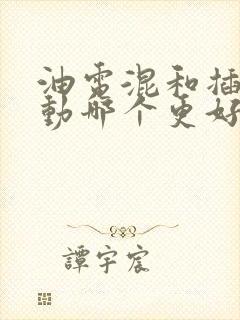 油電混和插
動哪个更好
譚宇宸